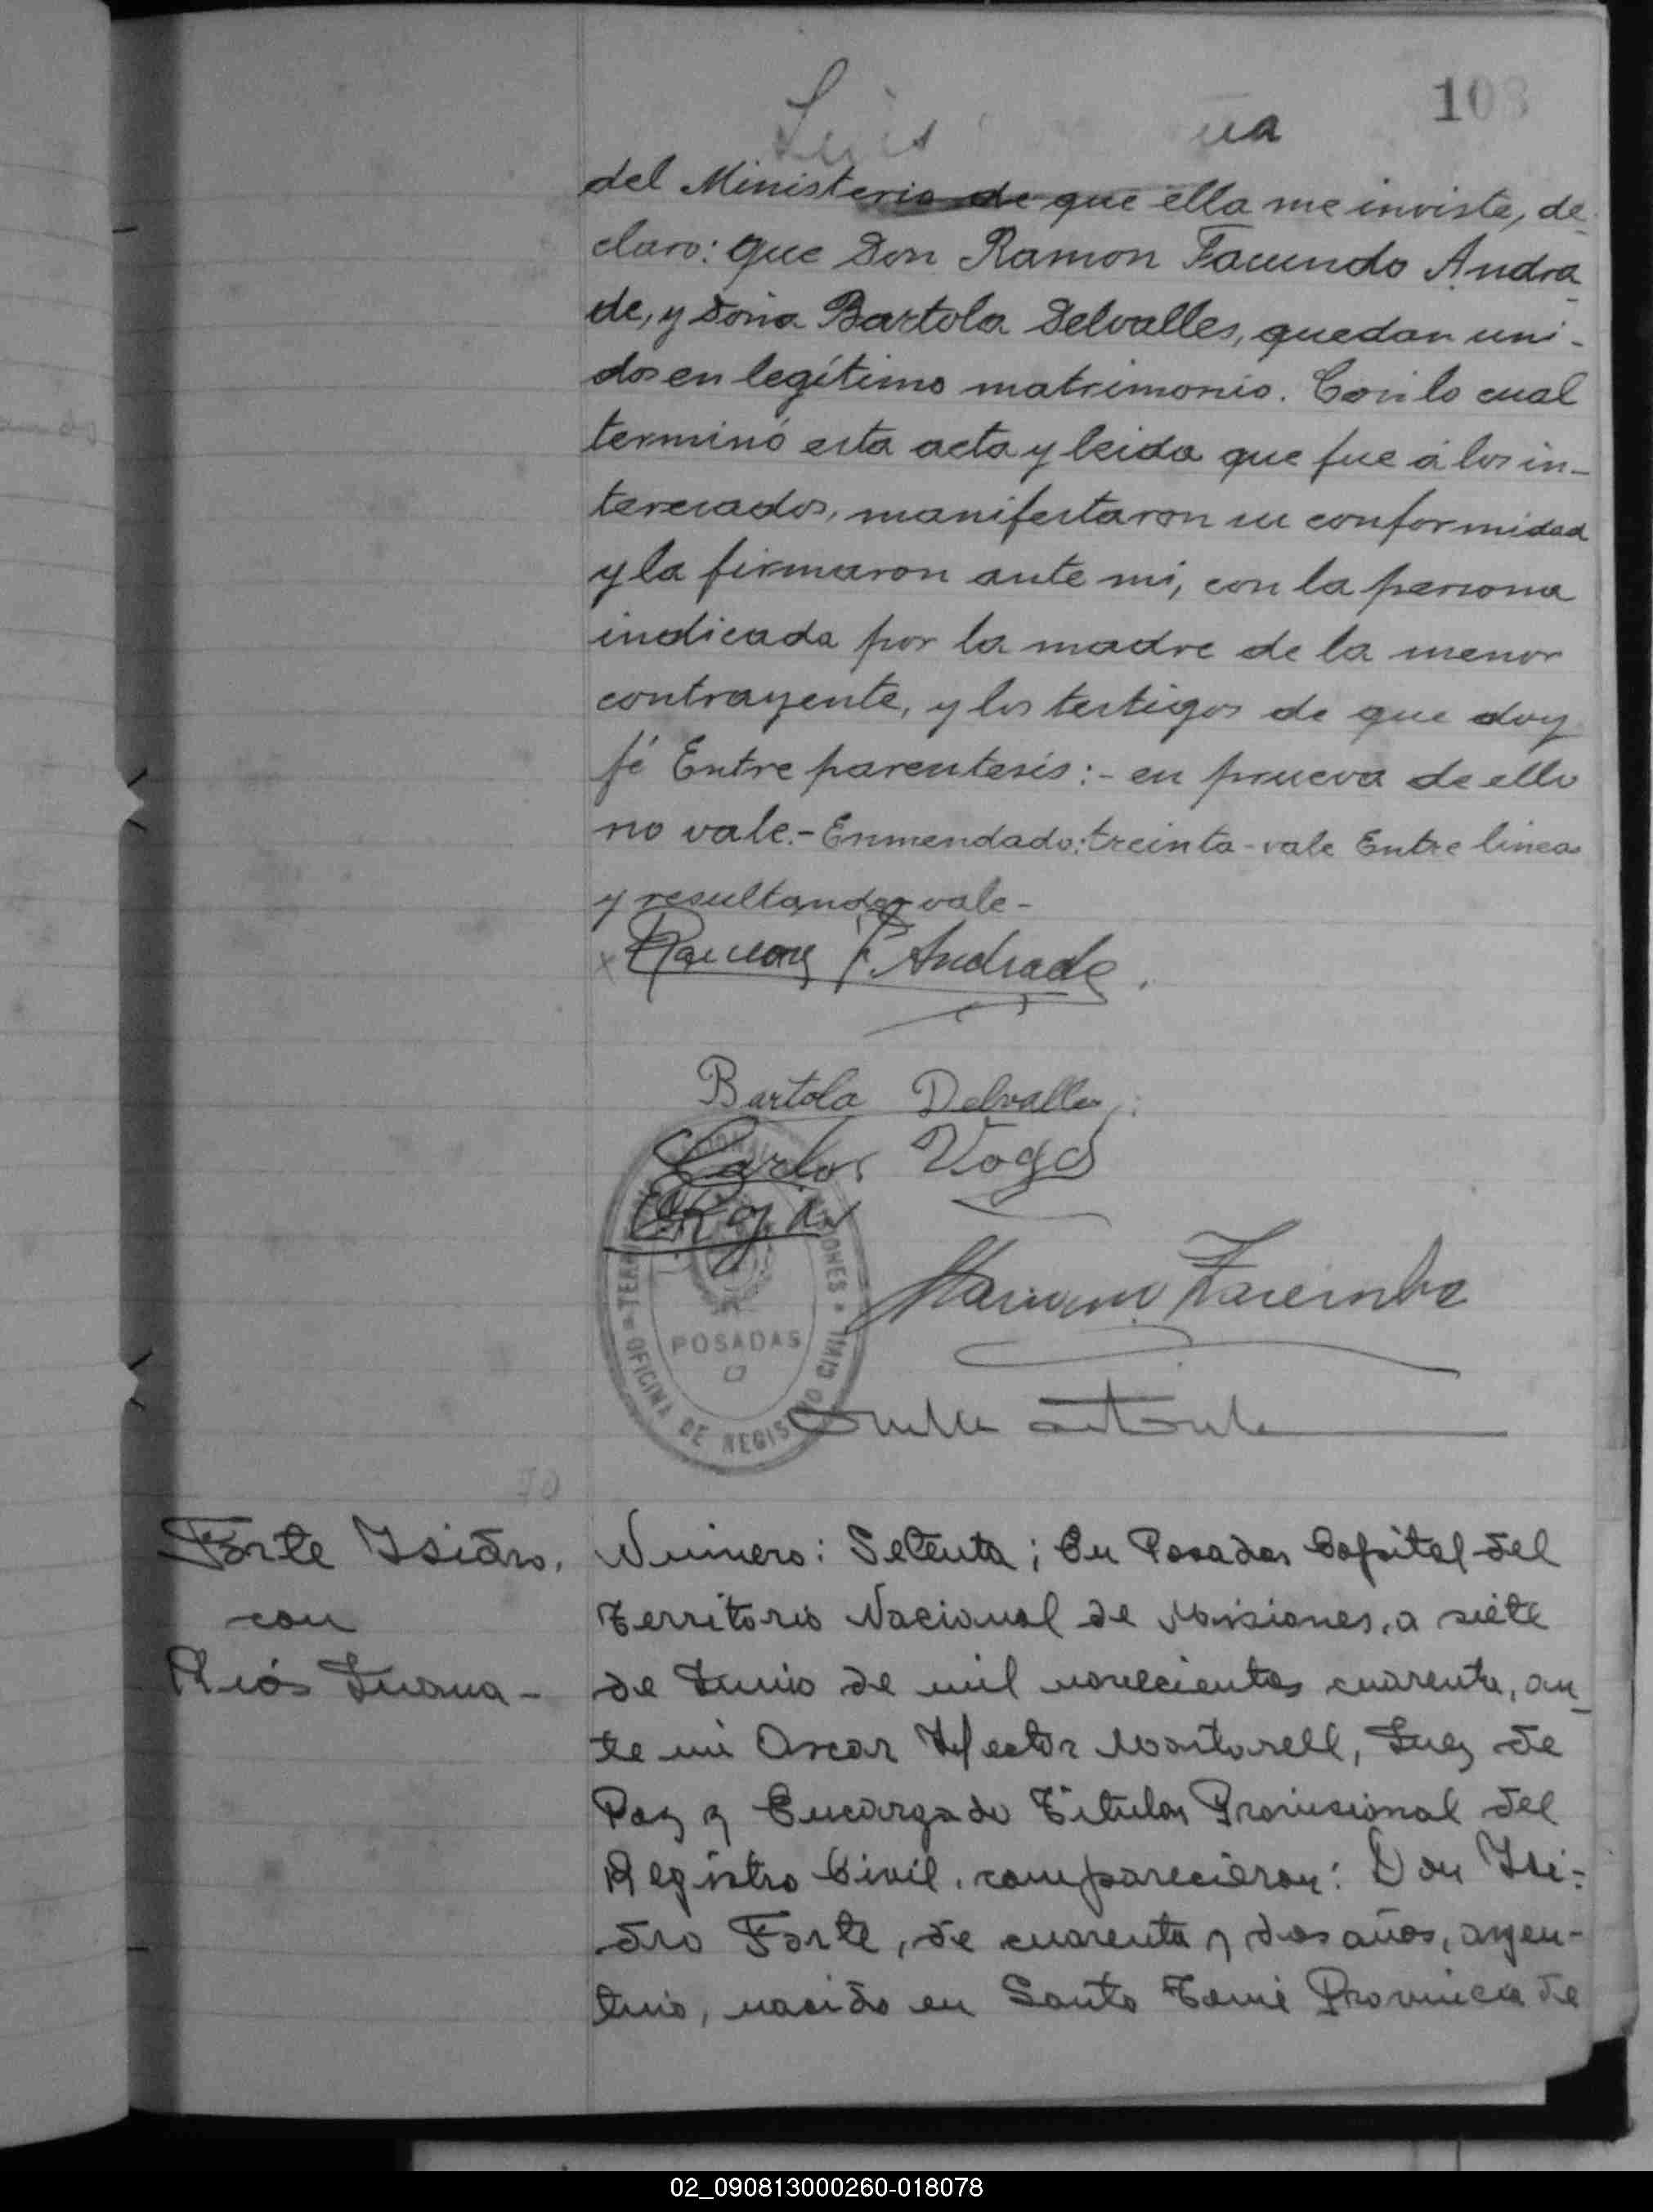 103
Luis
del Ministerio de que ella me inviste, de-
claro: que Don Ramon Facundo Andra-
de, y Doña Bartola Delvalles, quedan uni-
dos en legítimo matrimonio. Con lo cual
terminó esta acta y leida que fue á los in-
teresados, manifestaron su conformidad
y la firmaron ante mi, con la persona
indicada por la madre de la menor
contrayente, y los testigos de que doy
fé Entre parentesis:- en prueva de ello
no vale.- Enmendado: treinta - vale Entre lineas
y resultando, vale -
x Ramon F. Andrade.
Bartola Delvalles
Carlos
POSADAS
OFICINA DE REGISTRO CIVIL
70
Forte Isidro.
con
Riós Juana -
Número: Setenta; En Posadas Capital del
Territorio Nacional de Misiones, a siete
de Junio de mil novecientos cuarenta, an-
te mi Oscar Hector Montorell, Juez de
Paz y Encargado Titular Provisional del
Registro Civil, comparecieron: Don Isi-
dro Forte, de cuarenta y dos años, argen-
tino, nacido en Santo Tomé Provincia de
02_090813000260-018078